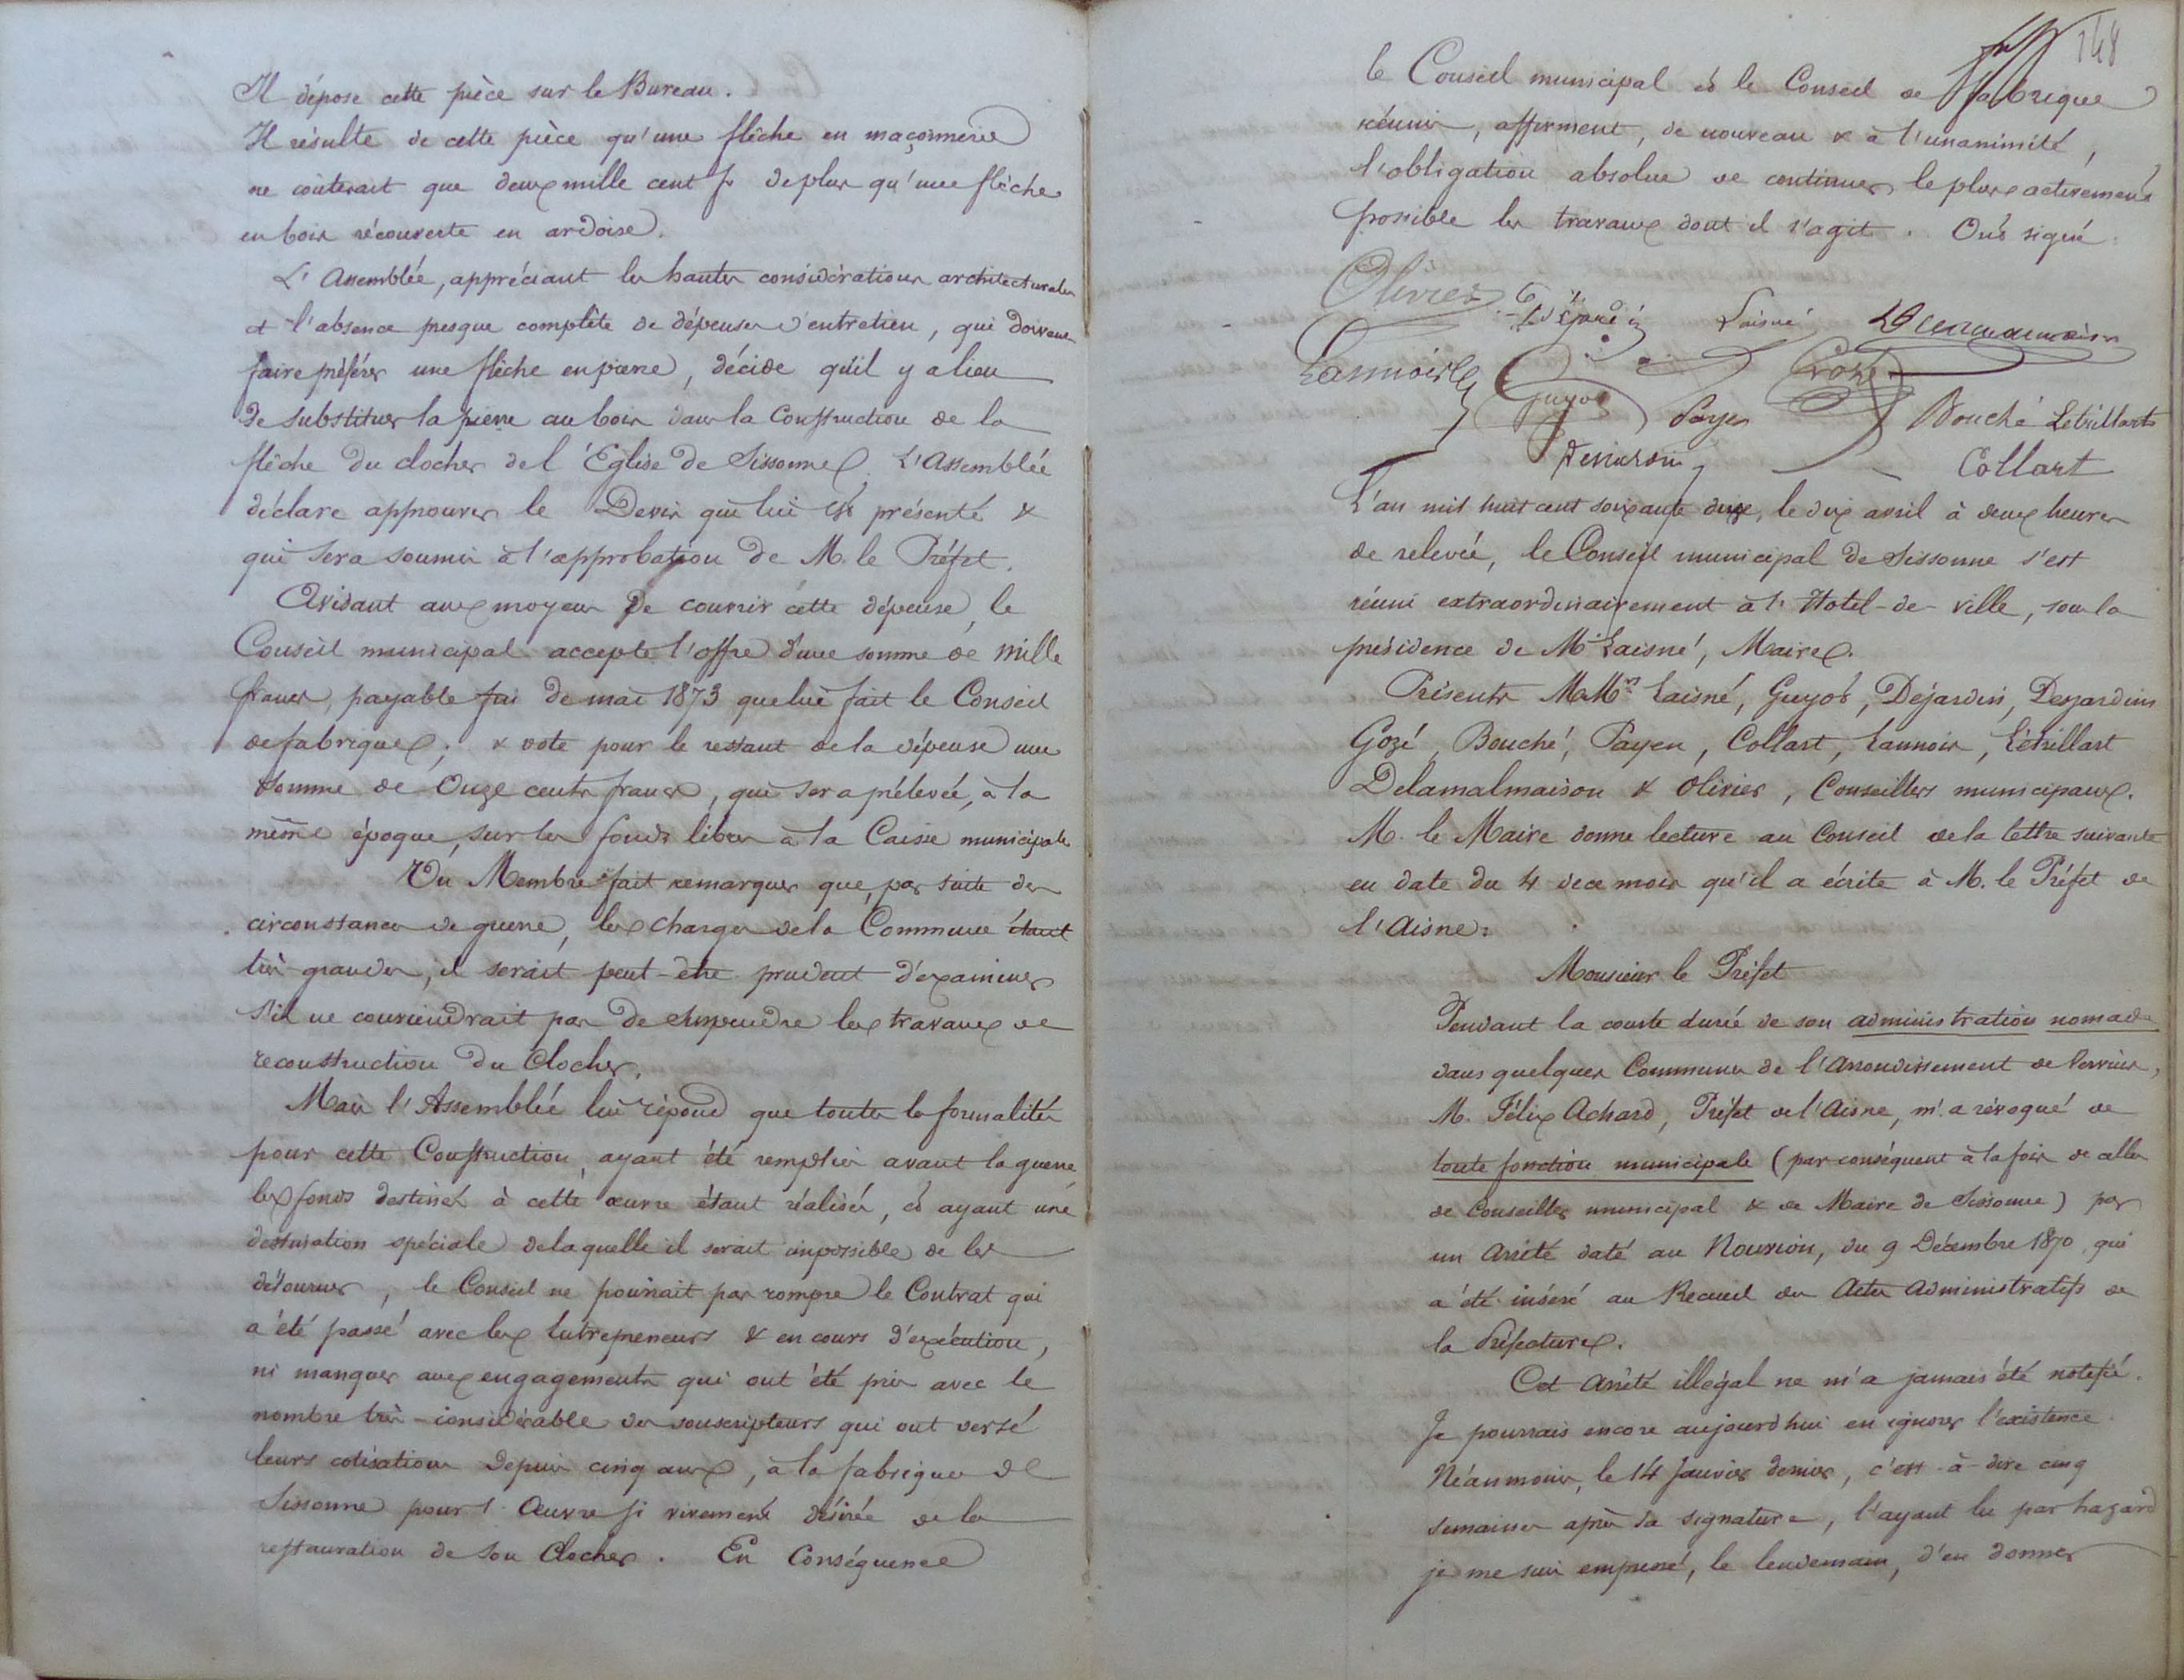 Il dépose cette pièce sur le Bureau.
Il résulte de cette pièce qu'une flêche en maçonnerie
ne coûterait que deux mille cent f. de plus qu'une flèche
en bois recouverte en ardoise.
L'Assemblée, appréciant les hautes considérations architecturales
et l'absence presque complète de dépenses d'entretien, qui doivent
faire préférer une flèche en pierre, décide qu'il y a lieu
de substituer la pierre au bois dans la Construction de la
flêche du clocher de l'Eglise de Sissonne. L'Assemblée
déclare approuver le Devis qui lui est présenté &
qui sera soumis à l'approbation de M. le Préfet.
Avisant aux moyens de couvrir cette dépense, le
Conseil municipal accepte l'offre d'une somme de mille
francs, payable fin de mai 1873 que lui fait le Conseil
de fabrique; & vote pour le restant de la dépense une
somme de Onze cents francs, qui sera prélevée, à la
même époque, sur les fonds libres à la Caisse municipale
Un Membre fait remarquer que, par suite des
circonstances de guerre, les charges de la Commune étant
très-grandes, il serait peut-être prudent d'examiner
s'il ne conviendrait pas de suspendre les travaux de
reconstruction du Clocher.
Mais l'Assemblée lui répond que toutes les formalités
pour cette Construction, ayant été remplies avant la guerre,
les fonds destinés à cette œuvre étant réalisés, et ayant une
destination spéciale de laquelle il serait impossible de les
détourner, le Conseil ne pourrait pas rompre le Contrat qui
a été passé avec les Entrepreneurs & en cours d'exécution,
ni manquer aux engagements qui ont été pris avec le
nombre très-considérable des souscripteurs qui ont versé
leurs cotisations depuis cinq ans, à la fabrique de
Sissonne pour l'Œuvre si vivement désirée de la
restauration de son Clocher. En Conséquence
148
le Conseil municipal et le Conseil de fabrique
réunis, affirment, de nouveau & à l'unanimité,
l'obligation absolue de continuer le plus activement
possible les travaux dont il s'agit. Ont signé.
Olivier Laisné
Lannois Gozé
Guyot Payen Bouché Létrillart
Collart
L'an mil huit cent soixante onze, le dix avril à deux heures
de relevée, le Conseil municipal de Sissonne s'est
réuni extraordinairement à l'Hotel-de-ville, sous la
présidence de Mr Laisné, Maire.
Présents MMrs Laisné, Guyot, Dejardin, Desjardins
Gozé, Bouché, Payen, Collart, Lannois, Létrillart
Delamalmaison & Olivier, Conseillers municipaux.
M. le Maire donne lecture au Conseil de la lettre suivante
en date du 4 de ce mois qu'il a écrite à M. le Préfet de
l'Aisne:
Monsieur le Préfet
Pendant la courte durée de son administration nomade
dans quelques Communes de l'arrondissement de Vervins,
M. Félix Achard, Préfet de l'Aisne, m'a révoqué de
toute fonction municipale (par conséquent à la fois de celles
de Conseiller municipal & de Maire de Sissonne) par
un Arrêté daté au Nouvion, du 9 Décembre 1870, qui
a été inséré au Recueil des Actes Administratifs de
la Préfecture.
Cet Arrêté illégal ne m'a jamais été notifié.
Je pourrais encore aujourd'hui en ignorer l'existence.
Néanmoins, le 14 Janvier dernier, c'est-à-dire cinq
semaines après sa signature, l'ayant lu par hazard
je me suis empressé, le lendemain, d'en donner